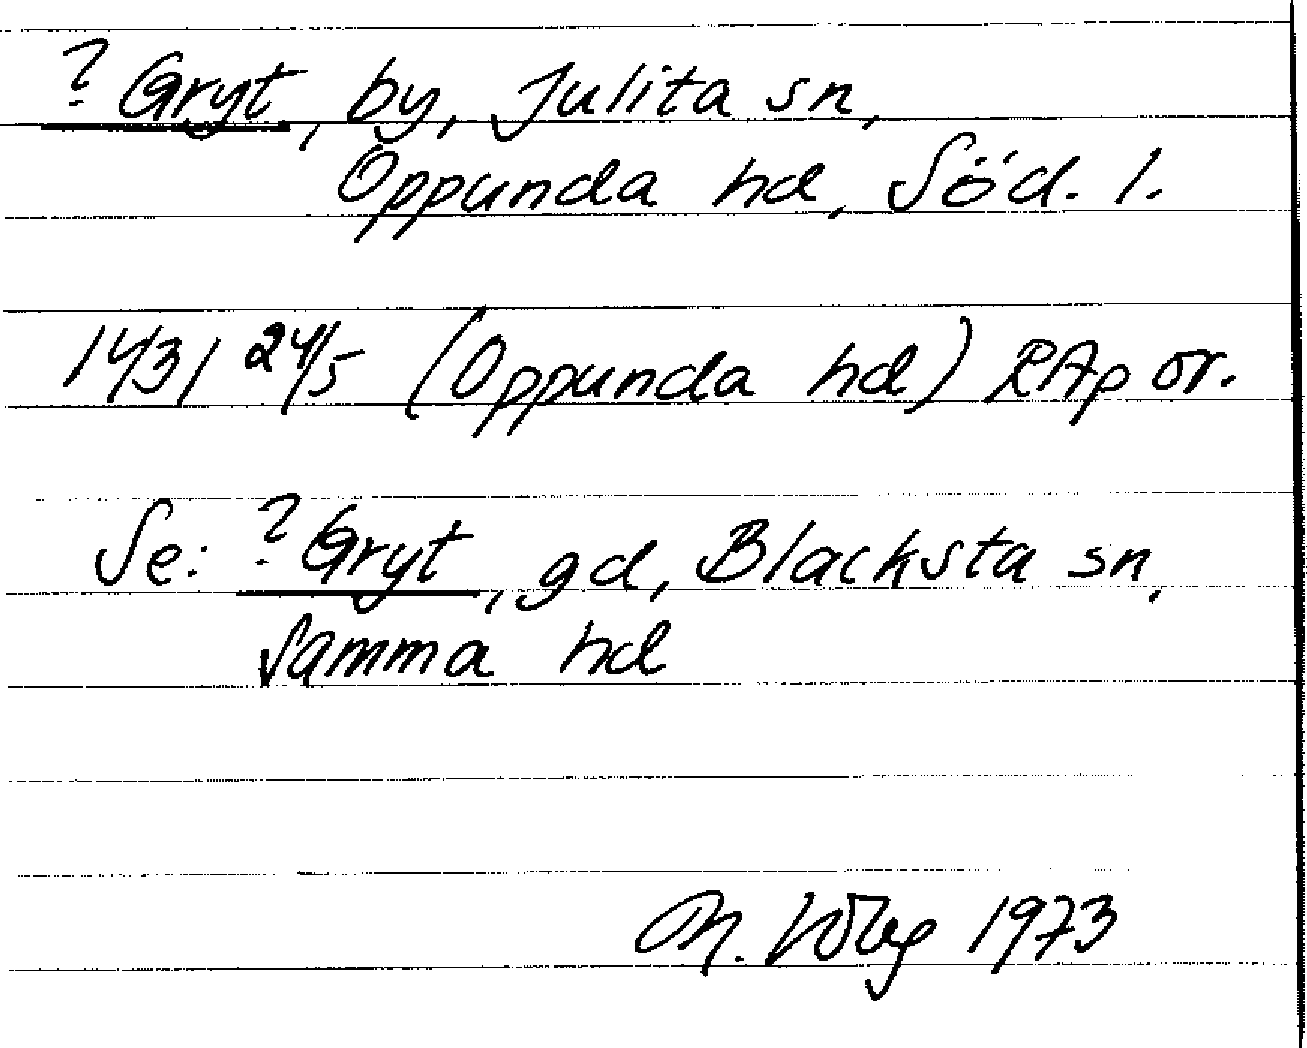 ? Gryt, by, Julita sn,
Oppunda hd, Söd. l.
1431 24/5 (Oppunda hd) RAp or.
Se: ? Gryt, gd, Blacksta sn,
samma hd
M. 1973